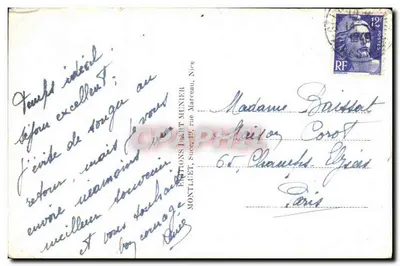 Temps idéal,
séjour excellent;
j'évite de songer au
retour, mais je vous
envoie neamoins un
meilleur souvenir
et vous souhaite
bon courage
EDITIONS D'ART MUNIER
MONTLUET, Succr, 19, rue Marceau, Nice
12F
RF
Madame Baissat
Maison Corot
65 Champs Elysées
Paris